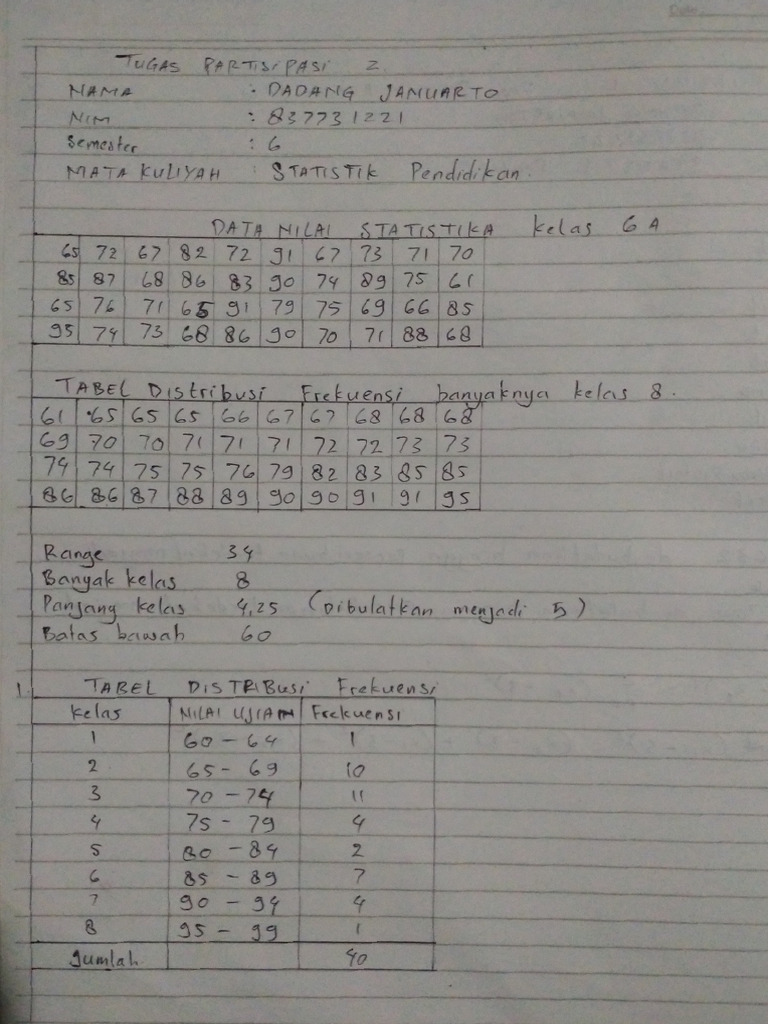 TUGAS PARTISIPASI 2
NAMA : DADANG JANUARTO
NIM : 837731221
Semester : 6
MATA KULIYAH : STATISTIK Pendidikan.
DATA NILAI STATISTIKA kelas 6 A
65 72 67 82 72 91 67 73 71 70
85 87 68 86 83 90 74 89 75 61
65 76 71 65 91 79 75 69 66 85
95 74 73 68 86 90 70 71 88 68
TABEL Distribusi Frekuensi banyaknya kelas 8.
61 65 65 65 66 67 67 68 68 68
69 70 70 71 71 71 72 72 73 73
74 74 75 75 76 79 82 83 85 85
86 86 87 88 89 90 90 91 91 95
Range 34
Banyak kelas 8
Panjang kelas 4,25 (Dibulatkan menjadi 5)
Batas bawah 60
1. TABEL DISTRIBUSI Frekuensi
Kelas NILAI UJIAN Frekuensi
1 60 - 64 1
2 65 - 69 10
3 70 - 74 11
4 75 - 79 4
5 80 - 84 2
6 85 - 89 7
7 90 - 94 4
8 95 - 99 1
Jumlah 40